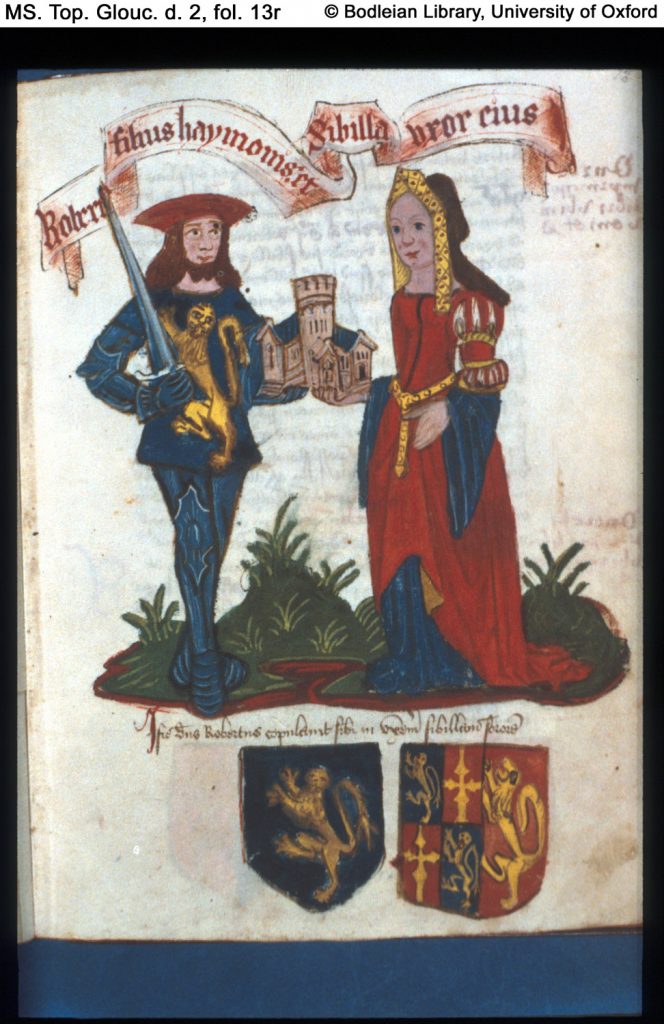 MS. Top. Glouc. d. 2, fol. 13r © Bodleian Library, University of Oxford
Robert filius haymonis et Sibilla uxor eius
Iste dns Robertus copulavit sibi in uxorem sibillam sororem